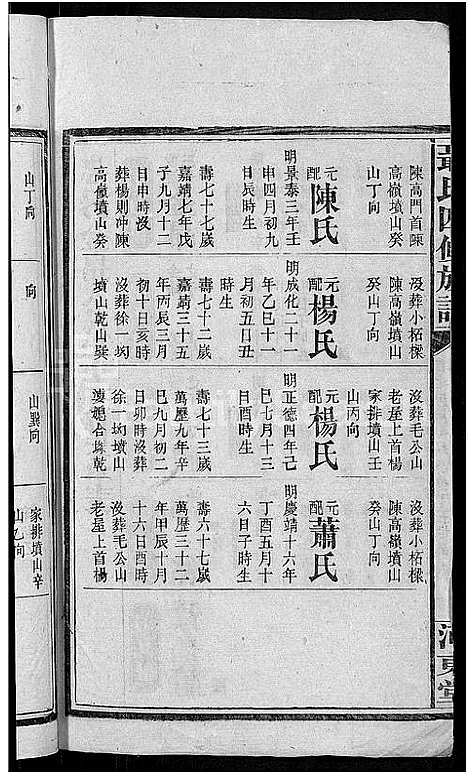 氏四修族譜
河東堂
陳高門首陳
高嶺墳山癸
山丁向
元配陳氏
明景泰三年壬
申四月初九
日酉時生
壽七十七歲
嘉靖七年戊
子九月十二
日申時沒
葬楊則沖陳
高嶺墳山癸
山丁向
沒葬小柘樑
陳高嶺墳山
癸山丁向
元配楊氏
明成化二十一
年乙巳十一
月初五日丑
時生
壽七十二歲
嘉靖三十五
年丙辰三月
初十日亥時
沒葬徐一坳
墳山乾山巽
向
沒葬毛公山
老屋上首楊
家排墳山壬
山丙向
元配楊氏
明正德四年己
巳七月十三
日酉時生
壽七十三歲
萬歷九年辛
巳九月初二
日卯時沒葬
徐一坳墳山
合塚乾
山巽向
沒葬小柘樑
陳高嶺墳山
癸山丁向
元配蕭氏
明慶靖十六年
丁酉五月十
六日子時生
壽六十七歲
萬歷三十二
年甲辰十月
十六日酉時
沒葬毛公山
老屋上首楊
家排墳山辛
山乙向